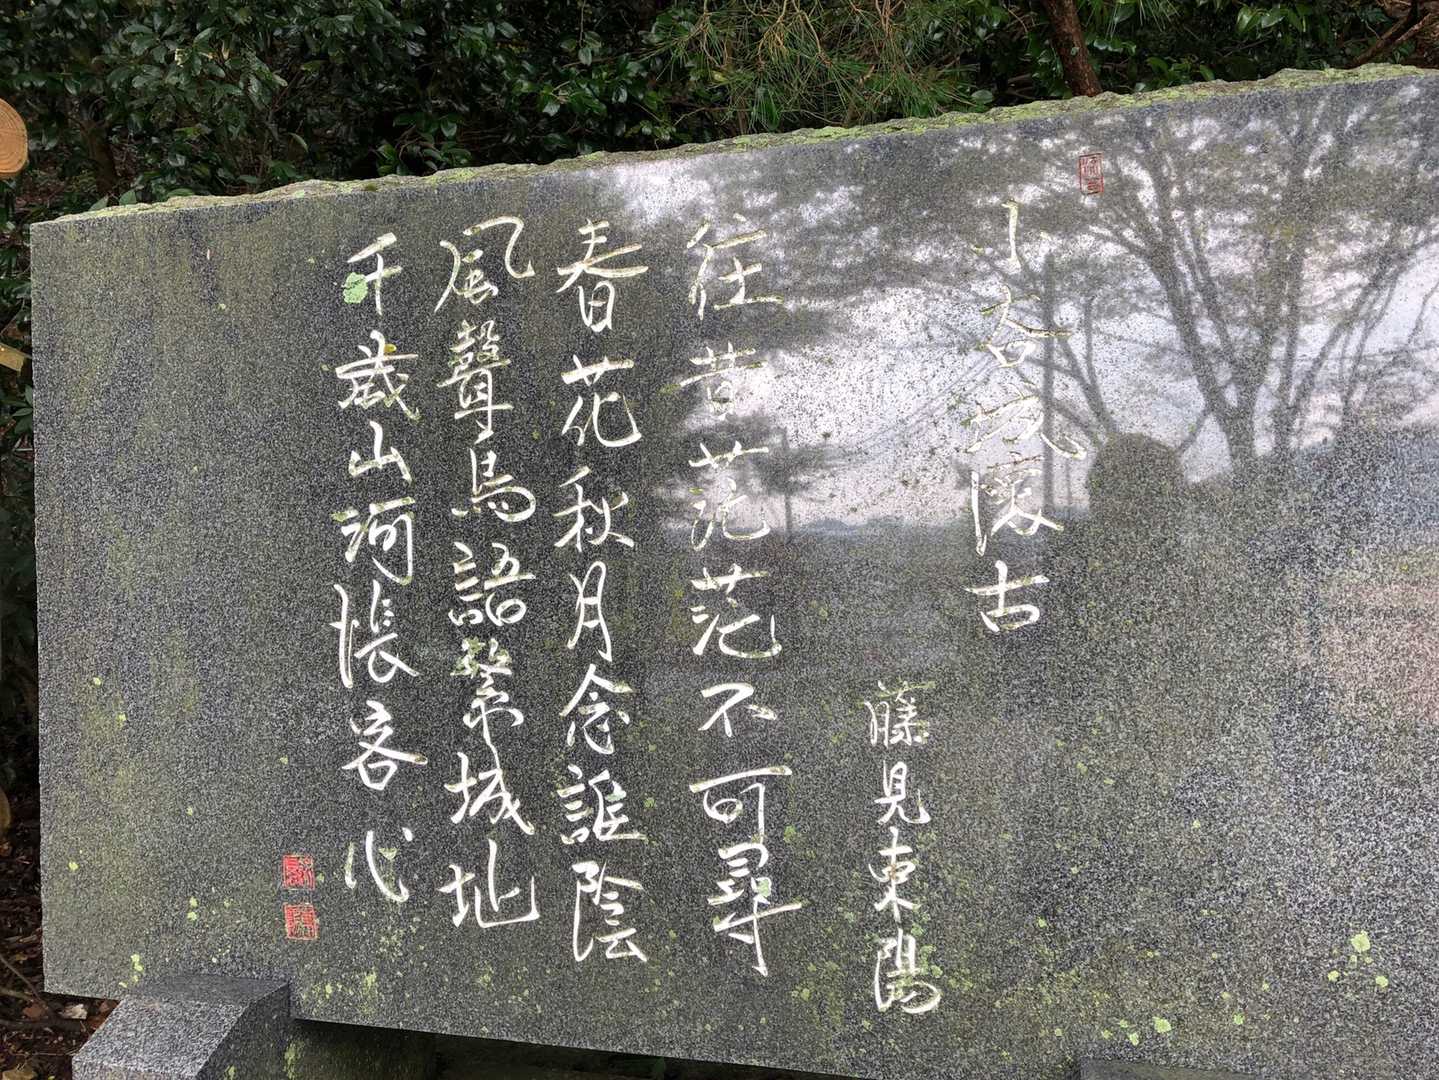 小谷城懐古
藤見東陽
往昔茫茫不可尋
春花秋月念誰陰
風聲鳥語繁城址
千歳山河悵客心